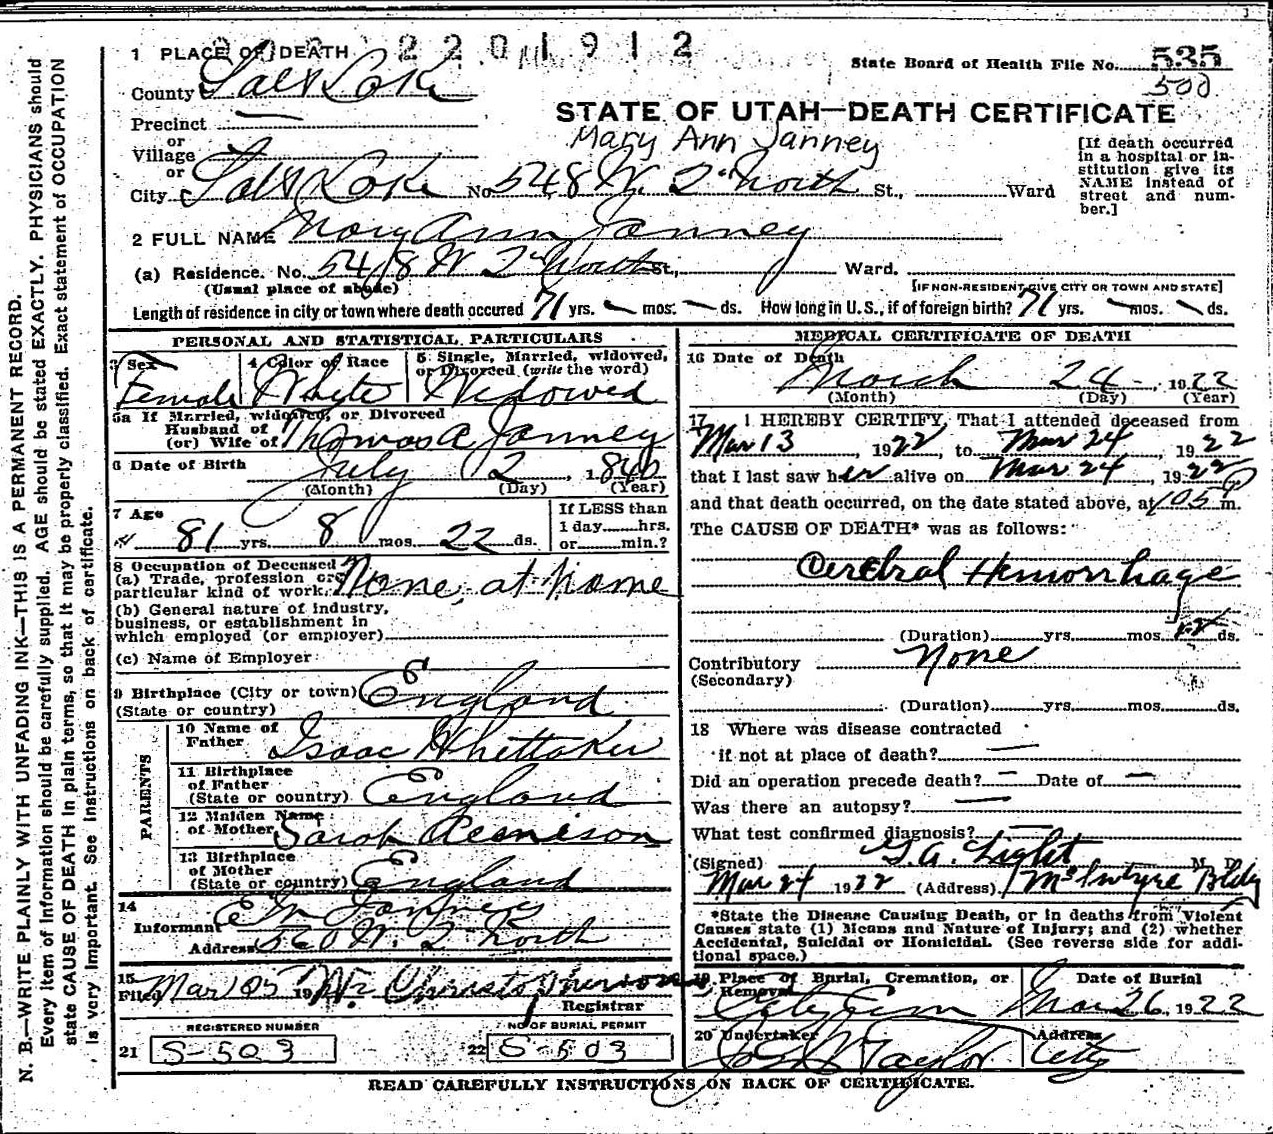 2201912
1 PLACE OF DEATH
State Board of Health File No. 535
500
County Salt Lake
STATE OF UTAH—DEATH CERTIFICATE
Precinct
Mary Ann Janney
or
Village
or
City Salt Lake No. 548 W. 2" North St., Ward
[If death occurred
in a hospital or in-
stitution give its
NAME instead of
street and num-
ber.]
2 FULL NAME Mary Ann Janney
(a) Residence. No. 548 W 2" North St., Ward.
(Usual place of abode) [IF NON-RESIDENT GIVE CITY OR TOWN AND STATE]
Length of residence in city or town where death occured 71 yrs. – mos. – ds. How long in U.S., if of foreign birth? 71 yrs. – mos. – ds.
PERSONAL AND STATISTICAL PARTICULARS
3 Sex
Female
4 Color of Race
White
5 Single, Married, widowed,
or Divorced (write the word)
Widowed
5a If Married, widowed, or Divorced
Husband of
(or) Wife of Thomas A Janney
6 Date of Birth July 2, 1840
(Month) (Day) (Year)
7 Age
81 yrs. 8 mos. 22 ds.
If LESS than
1 day hrs.
or min.?
8 Occupation of Deceased
(a) Trade, profession or
particular kind of work. None, at home
(b) General nature of industry,
business, or establishment in
which employed (or employer)
(c) Name of Employer
9 Birthplace (City or town) England
(State or country)
PARENTS
10 Name of
Father Isaac Whittaker
11 Birthplace
of Father
(State or country) England
12 Maiden Name
of Mother Sarah
13 Birthplace
of Mother
(State or country) England
14
Informant Janney
Address 560 W. 2" North
15
Filed Mar 19
Registrar
REGISTERED NUMBER
21 S-503
NO OF BURIAL PERMIT
22 S-503
MEDICAL CERTIFICATE OF DEATH
16 Date of Death
March 24, 1922
(Month) (Day) (Year)
17 I HEREBY CERTIFY, That I attended deceased from
Mar 13, 1922, to Mar 24, 1922
that I last saw her alive on Mar 24, 1922
and that death occurred, on the date stated above, at 105 P m.
The CAUSE OF DEATH* was as follows:
Cerebral Hemorrhage
(Duration) yrs. mos. ds.
Contributory None
(Secondary)
(Duration) yrs. mos. ds.
18 Where was disease contracted
if not at place of death? —
Did an operation precede death? — Date of —
Was there an autopsy? —
What test confirmed diagnosis? —
(Signed) G. A. Light M. D.
Mar 24 1922 (Address) McIntyre Bldg
*State the Disease Causing Death, or in deaths from Violent
Causes state (1) Means and Nature of Injury; and (2) whether
Accidental, Suicidal or Homicidal. (See reverse side for addi-
tional space.)
19 Place of Burial, Cremation, or
Removal
City Cem
Date of Burial
Mar 26, 1922
20 Undertaker
Taylor
Address
City
READ CAREFULLY INSTRUCTIONS ON BACK OF CERTIFICATE.
N. B.—WRITE PLAINLY WITH UNFADING INK—THIS IS A PERMANENT RECORD.
Every item of information should be carefully supplied. AGE should be stated EXACTLY. PHYSICIANS should
state CAUSE OF DEATH in plain terms, so that it may be properly classified. Exact statement of OCCUPATION
is very important. See instructions on back of certificate.